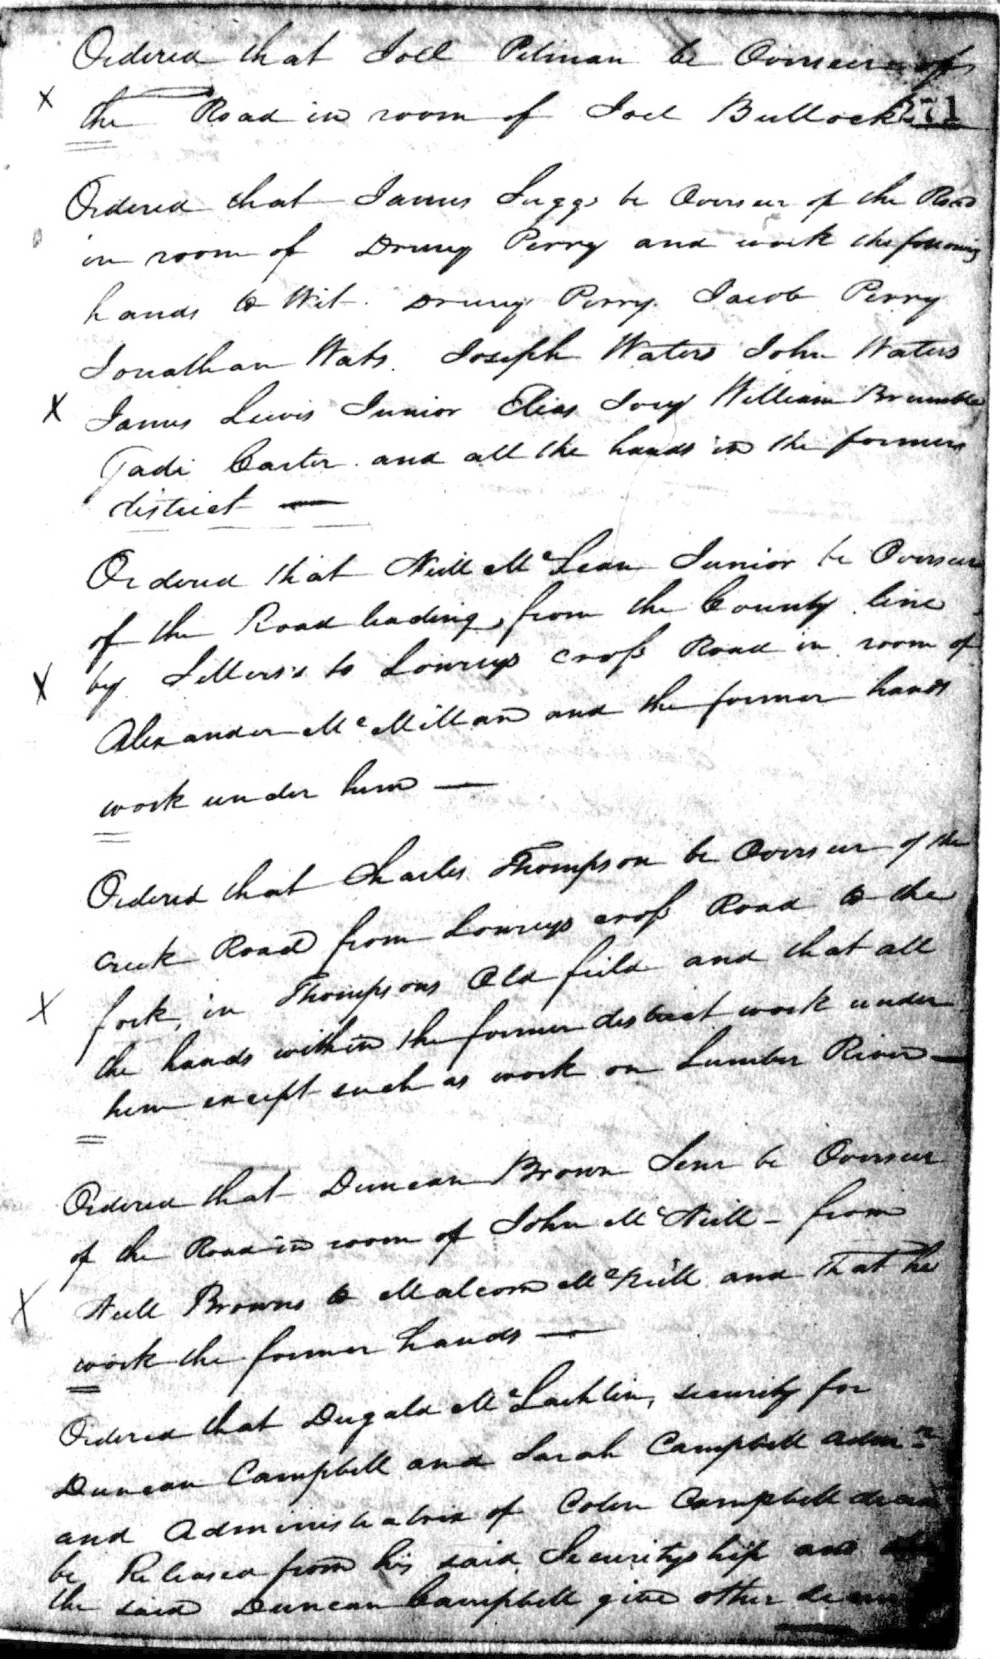 Ordered that Joel Pitman be Overseer of
the Road in room of Joel Bullock
271
Ordered that James Suggs be Overseer of the Road
in room of Drury Perry and work the following
hands to Wit. Drury Perry Jacob Perry
Jonathan Wats. Joseph Waters John Waters
X James Lewis Junior Elias Ivey William Brumble
Carter and all the hands in the former
district —
Ordered that Neill McLean Junior be Overseer
of the Road leading from the County line
X by to Lowreys cross Road in room of
Alexander McMillan and the former hands
work under him —
Ordered that Charles Thompson be Overseer of the
creek Road from Lowreys cross Road to the
X fork, in Thompsons Old field and that all
the hands within the former district work under
him except such as work on Lumber River —
Ordered that Duncan Brown Senr be Overseer
of the Road in room of John McNeill – from
X Neill Browns to Malcom McNeill and that he
work the former hands —
Ordered that Dugald McLachlin, security for
Duncan Campbell and Sarah Campbell Admr
and Administratrix of Colin Campbell
be Released from his said Securityship and
the said Duncan Campbell give other